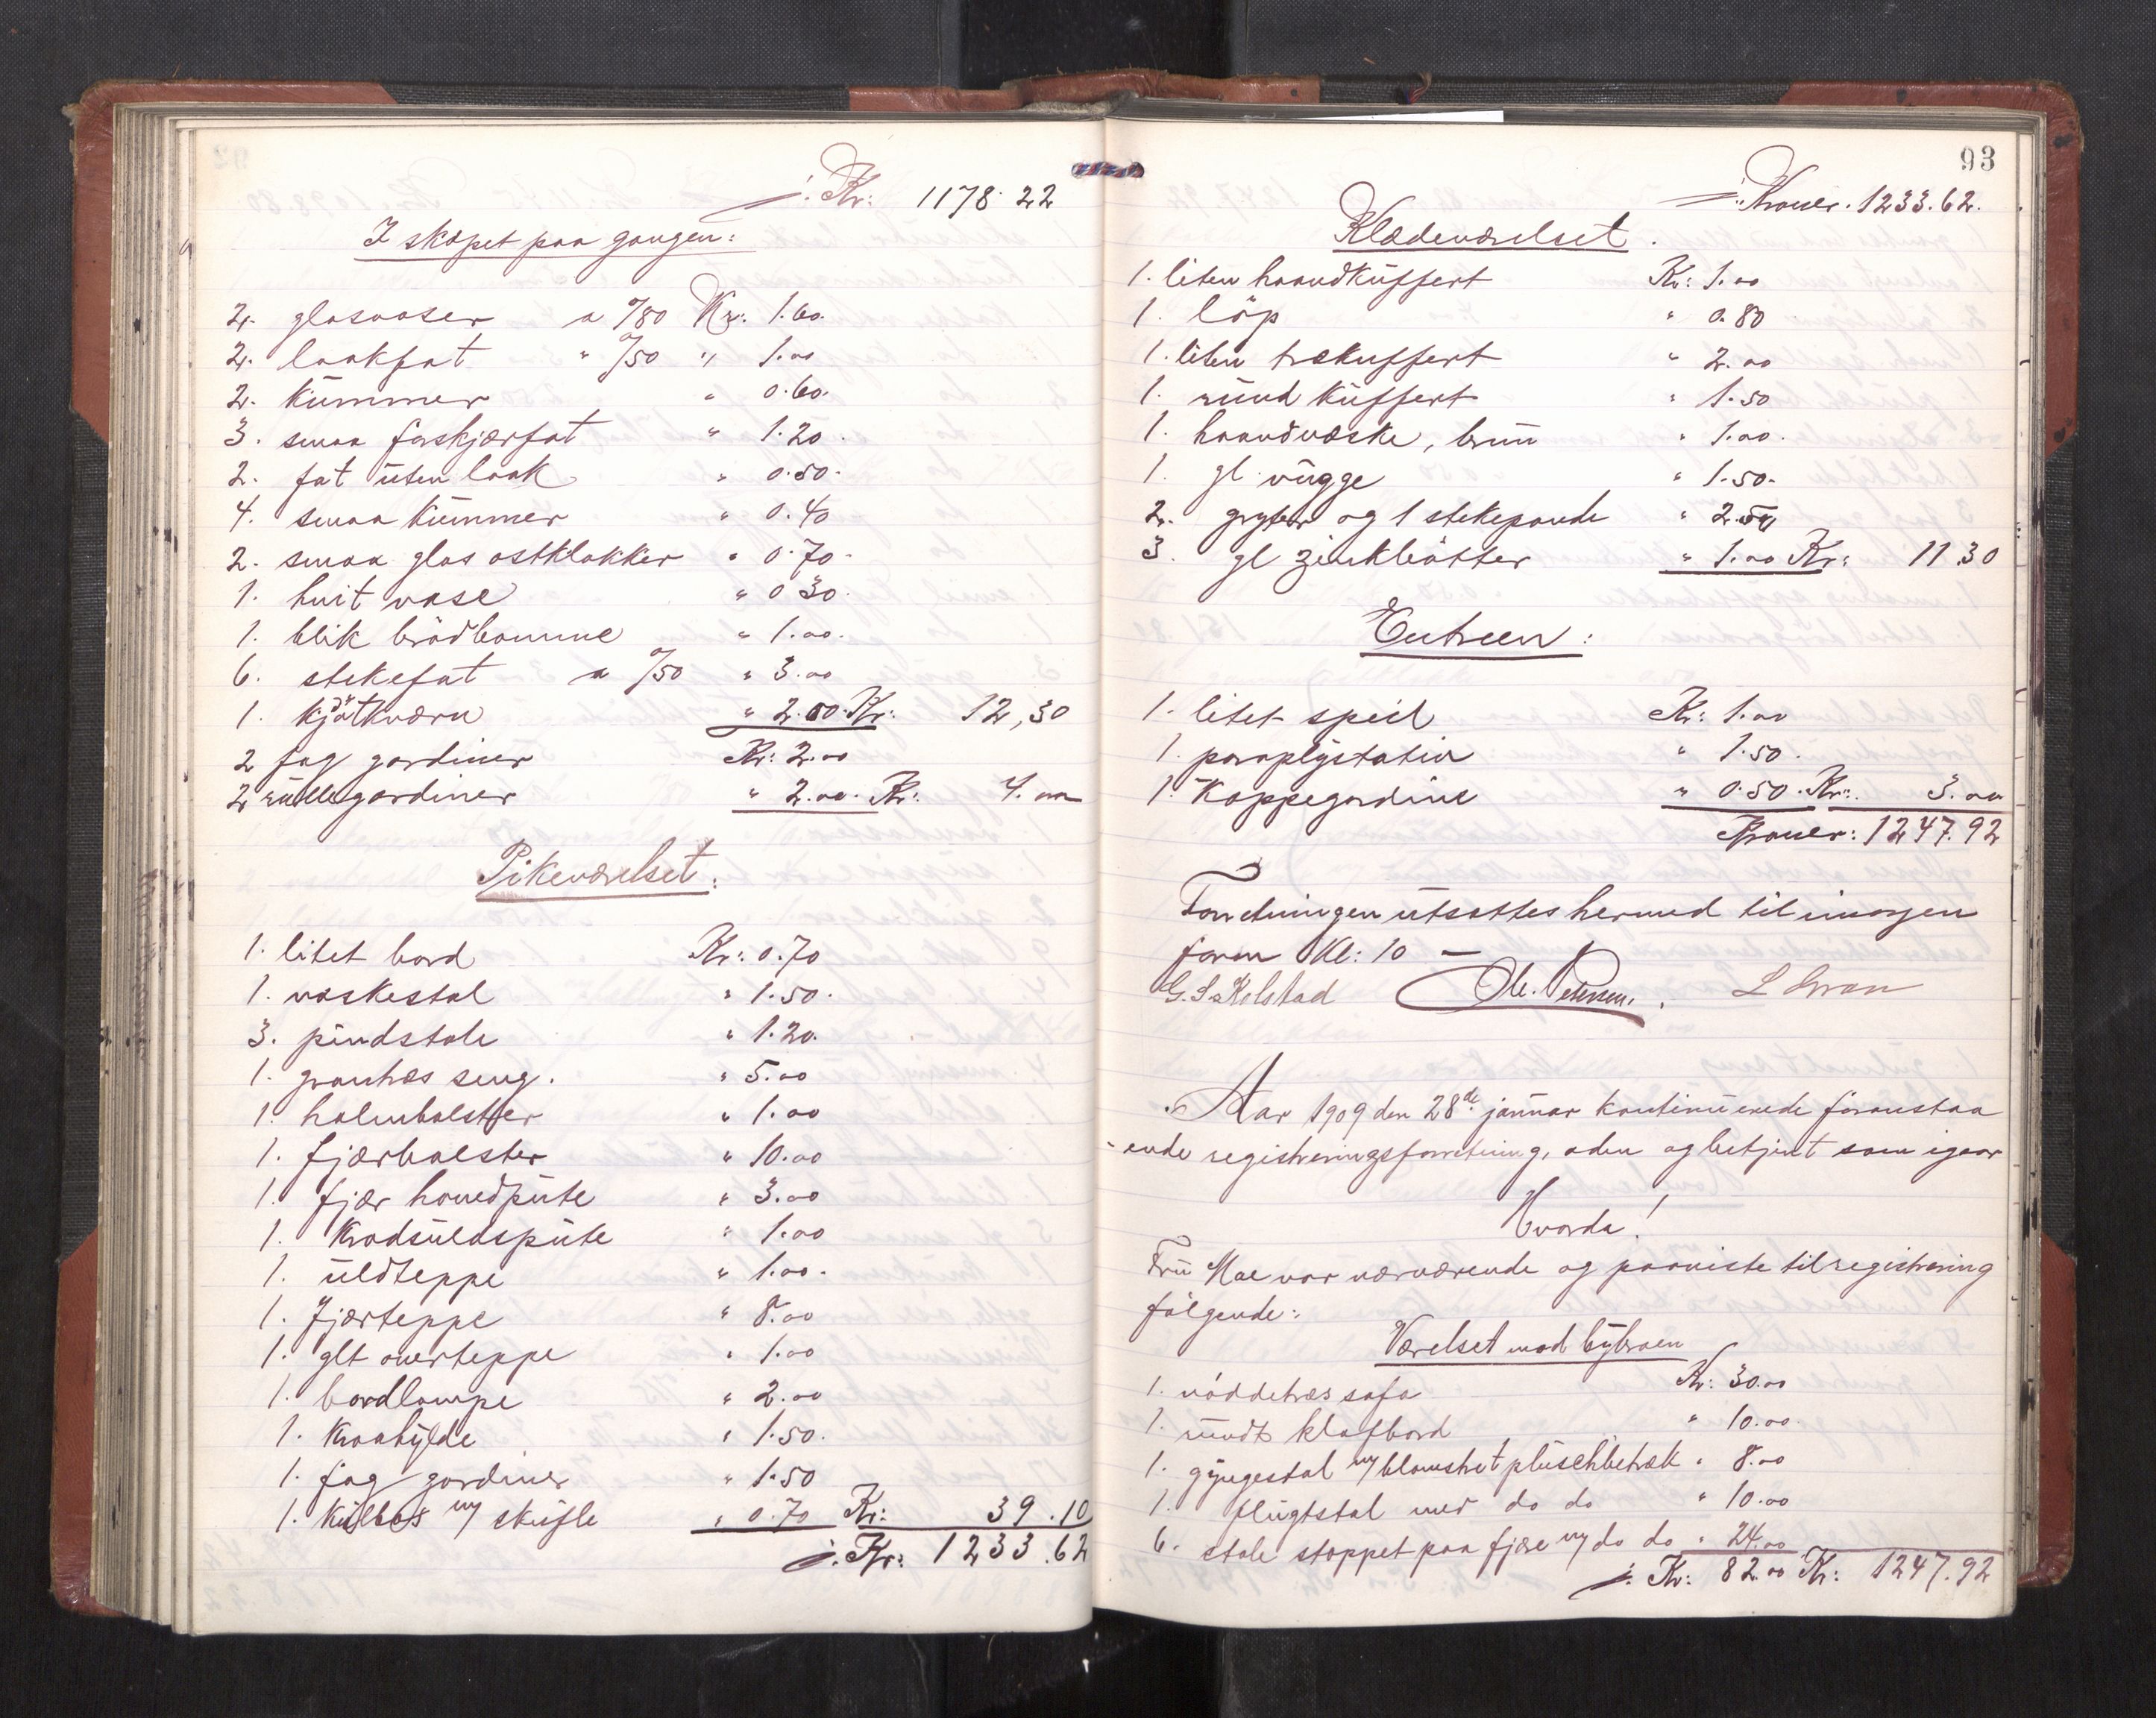 ÷ Kr: 1178.22
I skapet paa gangen:
2. glasvaser a %80 Kr: 1.60.
2. laakfat " %50 " 1.00
2. kummer " 0.60.
3. smaa forskjærfat " 1.20.
2. fat uten laak " 0.50.
4. smaa kummer " 0.40
2. smaa glas ostklokker " 0.70.
1. hvit vase " 0 30.
1. blik brödbomme " 1.00.
6. stekefat a %50 " 3.00
1. kjötkværn " 2.00. Kr: 12,30
2 fag gardiner Kr: 2.00
2 rullegardiner " 2.00. Kr: 4.00
Pikeværelset:
1. litet bord Kr: 0.70
1. vaskestol " 1.50.
3. pindstole " 1.20.
1. grantræs seng. " 5.00
1. halmbolster " 1.00
1. fjærbolster " 10.00
1. fjær hovedpute " 3.00
1. Krøduldspute " 1.00
1. uldteppe " 1.00.
1. fjærteppe " 8.00
1. glt overteppe " 1.00
1. bordlampe " 2.00
1. Kraahylde " 1.50.
1. fag gardiner " 1.50
1. kulbox m/ skufle " 0.70 Kr: 39.10
÷ Kr: 1233.62
93
÷ Kroner. 1233.62.
Klædeværelset.
1. liten haandkuffert Kr: 1.00
1. löp " 0.80
1. liten trækuffert " 2.00
1. rund kuffert " 1.50
1. haandvæske, brun " 1.00.
1. gl. vugge " 1.50.
2. gryter og 1 stekepande " 2.50
3. gl zinkbötter " 1.00 Kr: 11.30
Entreen:
1. litet speil Kr: 1.00
1. paraplystativ " 1.50.
1. Kappegardine " 0.50. Kr: 3.00
Kroner: 1247.92
Forretningen utsattes hermed til imorgen
form Kl: 10 —
G. S. Rolstad Ole Petersen. L Svan
Aar 1909 den 28de januar kontinuerede foranstaa
-ende registreringsforretning, aden og betjent som igaar
Hvorda!
Fru Moe var nærværende og paaviste til registrering
fölgende:
Værelset mod bybroen
1. nöddetræs sofa Kr: 30.00
1. rundt klafbord " 10.00
1. gyngestol m/ blomstret pluschbetræk " 8.00
1. flugtstol med do do " 10.00
6. stole stoppet paa fjære m/ do do " 24.00
÷ Kr: 82.00 Kr: 1247.92